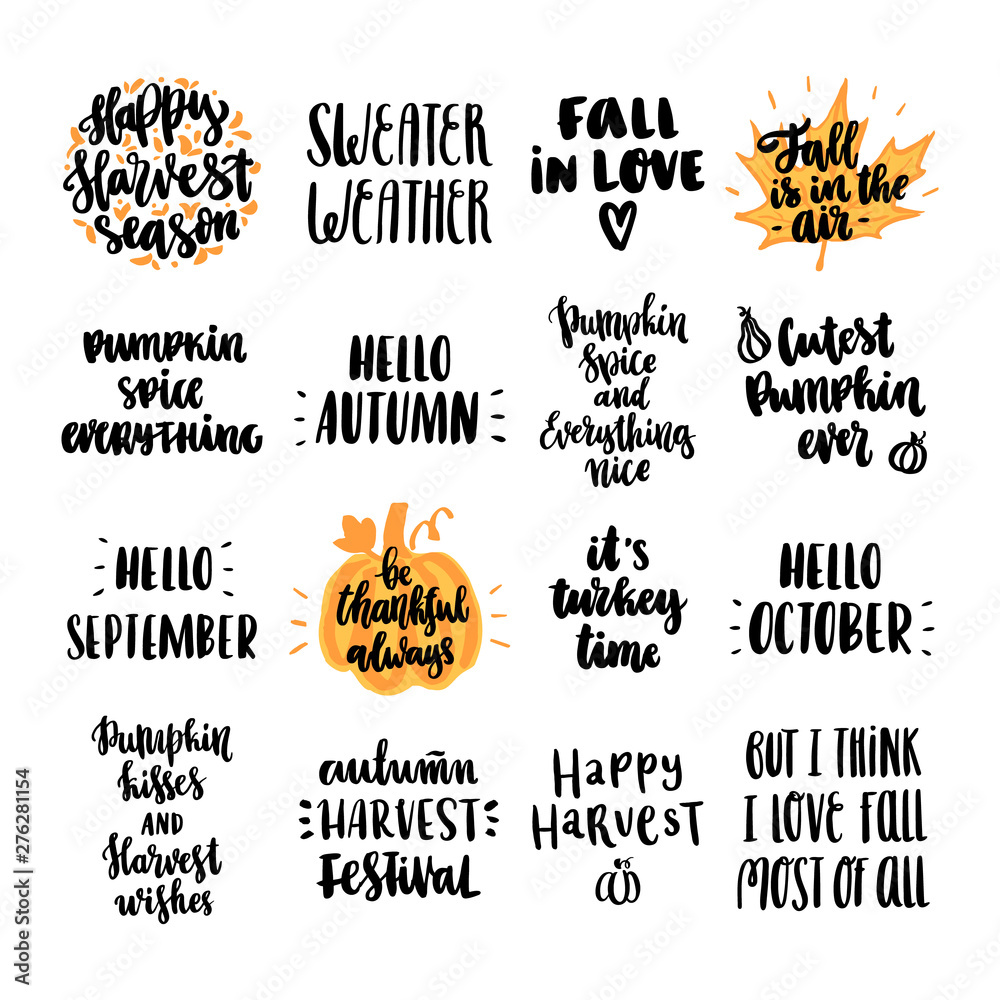 Happy
Harvest
season
SWEATER
WEATHER
FALL
IN LOVE
Fall
is in the
- air -
PUMPKIN
SPICE
EVERYTHING
HELLO
AUTUMN
Pumpkin
Spice
and
Everything
nice
Cutest
Pumpkin
ever
HELLO
SEPTEMBER
be
thankful
always
it's
turkey
time
HELLO
OCTOBER
Pumpkin
kisses
AND
Harvest
wishes
autumn
HARVEST
FESTIVAL
Happy
HarvesT
BUT I THINK
I LOVE FALL
MOST OF ALL
Adobe Stock | #276281154